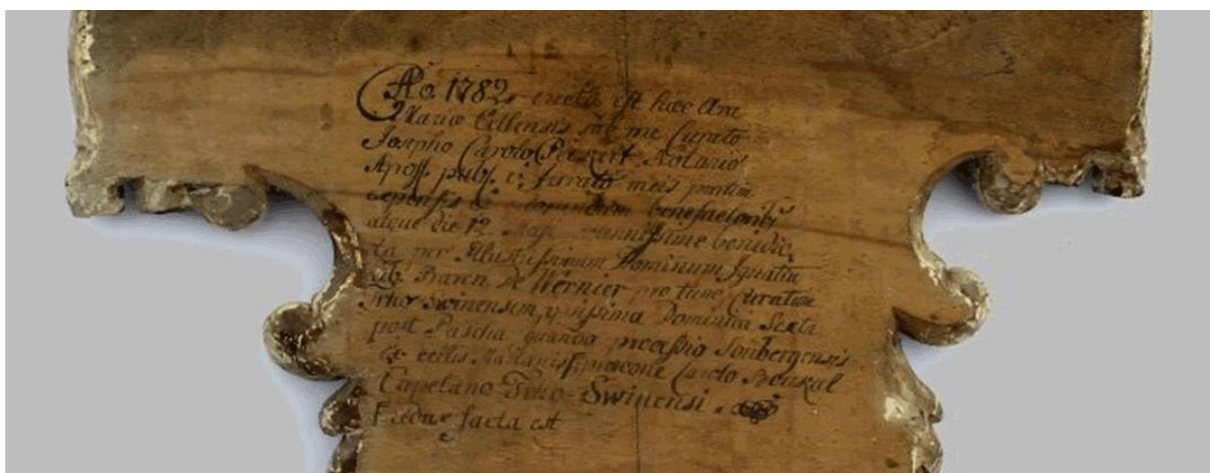 Ao. 1782 erecta est haec Ara
Mariae Cellensis sub me Curato
Josepho Carolo Peikert Notario
Apost. publ. et jurato meis partim
expensis et benefactoribus
atque die 12 Maji benedic
ta per Illustrissimum Dominum Ignatiu
Lib. Baron De Wernier pro tunc Curatum
Trho-Swinensem, ipsissima Dominica Sexta
post Pascha quando processio Sonbergensis
Cellis Carolo
Capelano Trho-Swinensi.
facta est